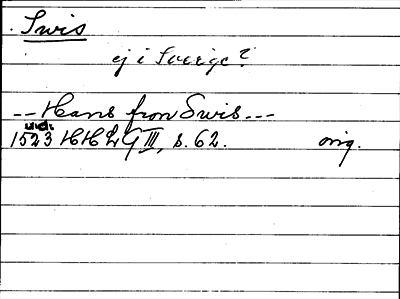 Swis
ej i Sverige?
-- Hans fron Swis ---
u.d.
1523 HH Lg III, s. 62. orig.